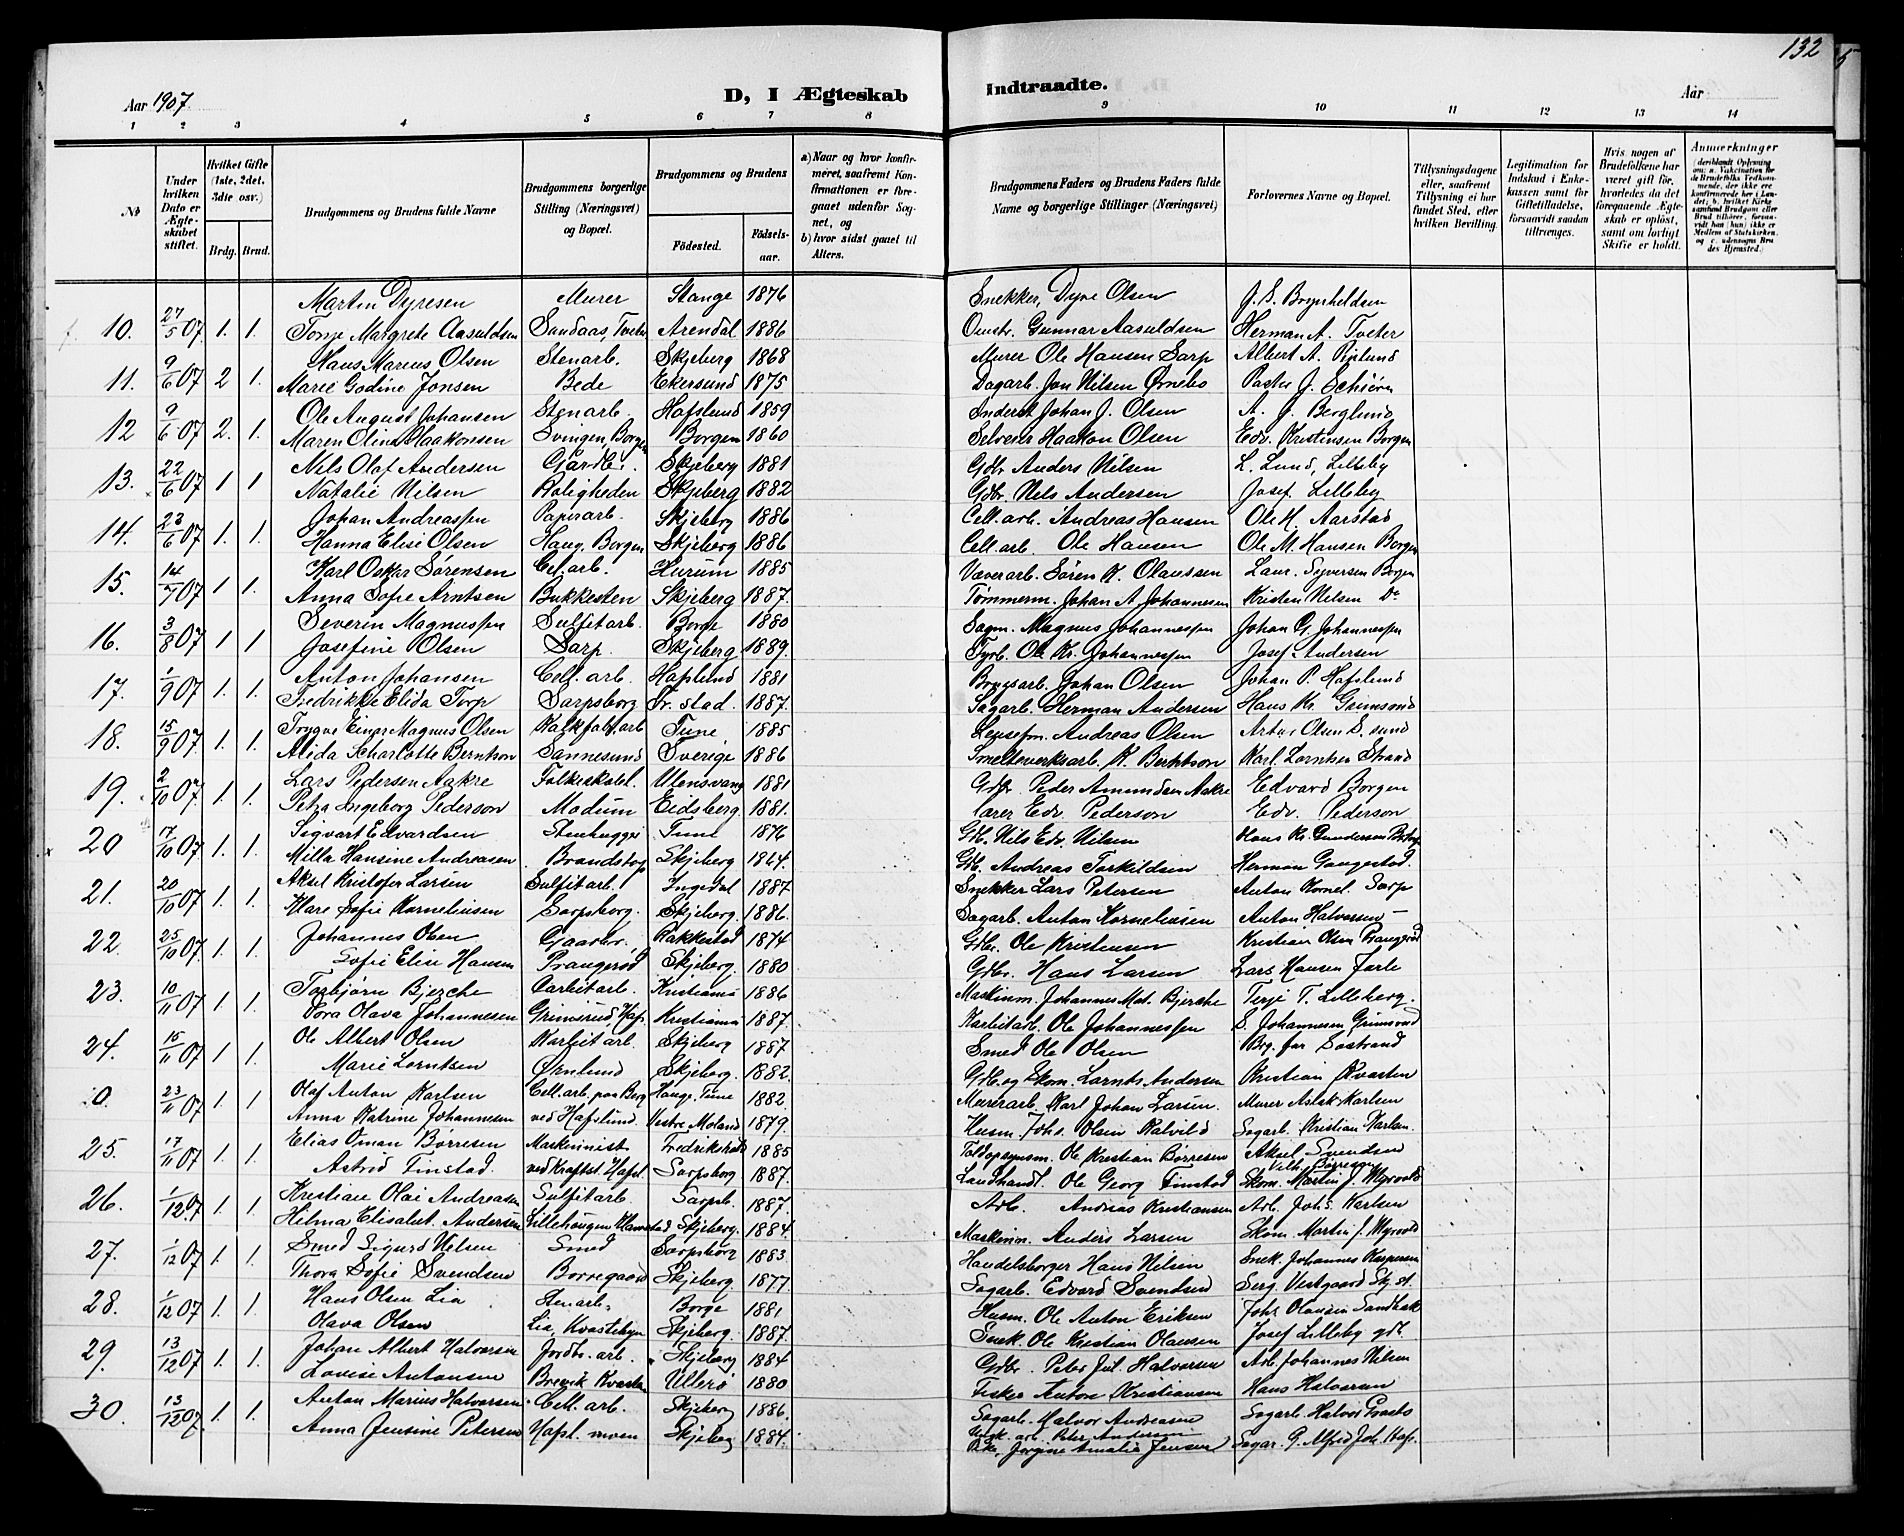 132
Aar 1907
D, I Ægteskab Indtraadte.
Aar
1 2 3 4 5 6 7 8 9 10 11 12 13 14
No
Under hvilken Dato er Ægteskabet stiftet.
Hvilket Gifte (1ste, 2det, 3die osv.)
Brdg. Brud.
Brudgommens og Brudens fulde Navne
Brudgommens borgerlige Stilling (Næringsvei) og Bopæl.
Brudgommens og Brudens
Födested.
Födselsaar.
a) Naar og hvor konfirmeret, saafremt Konfirmationen er foregaaet udenfor Sognet, og
b) hvor sidst gaaet til Alters.
Brudgommens Faders og Brudens Faders fulde Navne og borgerlige Stillinger (Næringsvei)
Forlovernes Navne og Bopæl.
Tillysningsdagene eller, saafremt Tillysning ei har fundet Sted, efter hvilken Bevilling.
Legitimation for Indskud i Enkekassen samt for Giftetilladelse, forsaavidt saadan tiltrænges.
Hvis nogen af Brudefolkene har været gift før, hvorledes da det foregaaende Ægteskab er oplöst, samt om lovligt Skifte er holdt.
Anmærkninger
Martin Dyresen Murer Stange 1876 Snekker, Dyre Olsen J. S. Brynheldsen
10. 27/5 07 1. 1. Tonje Margrete Aasuldsen Sandaas, Tveter Arendal 1886 Gunnar Aasuldsen Herman A. Tveter
Hans Marius Olsen Stenarb. Skjeberg 1868 Murer Ole Hansen Sarp Albert A.
11. 9/6 07 2 1. Marie Godine Jonsen Bede Ekersund 1875 Dagarb. Jon Nilsen Ørnebo Pastor J.
Ole August Johansen Stenarb. Hafslund 1859 Inderst Johan J. Olsen A. J. Berglund
12 9/6 07 2. 1. Maren Oline Haakonsen Svingen, Borgen Borgen 1860 Selveier Haakon Olsen Edv. Kristensen Borgen
Nils Olaf Andersen Gårdbr. Skjeberg 1881 Gdbr Anders Nilsen L. Lund, Lilleby
13. 22/6 07 1 1 Natalie Nilsen Roligheden Skjeberg 1882 Gdbr. Nels Andersen Josef Lilleby
Johan Andreassen Papirarb. Skjeberg 1886 Cell. arb. Andreas Hansen Ole H. Aarstad
14. 23/6 07 1. 1. Hanna Elise Olsen Haug, Borgen Skjeberg 1886 Cell. arb Ole Hansen Ole M. Hansen Borgen
Karl Oskar Sørensen Cel. arb. Hurum 1885 Væverarb. Søren K. Olaussen Laur. Syversen Borgen
15. 14/7 07 1 1 Anna Sofie Arntsen Bukkesten Skjeberg 1887. Tømmerm. Johan A. Johannesen Kristen Nilsen Do
Severin Magnussen Sulfitarb. Borge 1880 Sagm. Magnus Johannessen Johan G. Johannessen
16. 3/8 07 1 1 Josefine Olsen Sarp. Skjeberg 1889. Fyrb. Ole Kr. Johannessen Josef Andersen
Anton Johansen Cell. arb. Hafslund 1881 Johan Olsen Johan P. Hafslund
17. 1/9 07 1. 1. Fredrikke Elida Torp Sarpsborg Fr. stad. 1887. Sagarb. Herman Andersen Hans Kr. Grimsrud
Trygve Einar Magnus Olsen Kalkfab. arb Tune 1885 Lensefm. Andreas Olsen Artur Olsen S. sund
18. 15/9 07 1. 1. Alida Scharlotte Berntson Sannesund Sverige 1886 Smelteverksarb. K. Berntson Karl Lorntsen Strand
Lars Pedersen Aakre Folkeskolel. Ullensvang 1881 Gdbr. Peder Amundsen Aakre Edvard Borgen
19. 2/10 07 1. 1. Petra Ingeborg Pederson Modum Eidsberg 1881. Lærer Edv. Pederson Edv. Pederson
Sigvart Edvardsen Stenhugger Tune 1876 Gdb. Nils Edv. Nilsen Hans Kr. Gundersen
20 17/10 07 1. 1. Milla Hansine Andreasen Brandstorp Skjeberg 1864. Gdb. Andreas Torkildsen Herman Gangestad.
Aksel Kristofer Larsen Sulfitarb. Ingedal 1887 Snekker Lars Petersen Anton Kornel. Sarp
21. 20/10 07 1. 1. Klare Sofie Korneliusen Sarpsborg. Skjeberg. 1886. Sagarb. Anton Korneliusen Anton Halvorsen
Johannes Olsen Gaardbr. Rakkestad 1874 Gdbr. Ole Kristensen Kristian Olsen Prangerød
22. 25/10 07. 1. 1. Sofie Elise Hansen Prangerød Skjeberg. 1880 Gdbr. Hans Larsen Lars Hansen Jarle
Torbjørn Bjerche Carbitarb. Kristiania 1886 Maskinm. Johannes Mat. Bjerche Terje T. Lilleberg.
23. 10/11 07 1. 1. Tora Olava Johannesen Grimsrud, Haf. Kristiania 1887. Karbitarb. Ole Johannessen S. Johannesen Grimsrud
Ole Albert Olsen Karbitarb. Skjeberg 1887 Smed Ole Olsen
24. 15/11 07 1. 1. Marie Lorntsen Ørnlund Skjeberg. 1882. Gdb. og Skom. Lornts Andersen Kristian Kvasten
Olaf Anton Karlsen Cell. arb. paa Berg Hauge, Tune 1882 Murerarb. Karl Johan Larsen. Murer Aslak Karlsen
0. 23/11 07 1. 1. Anna Katrine Johannesen ved Hafslund. Vestre Moland 1879. Husm. Johs. Olsen Kalvild Sagarb. Kristian Karlsen.
Elias Oman Børresen Maskinist Fredrikstad 1885 Ole Kristian Børresen Aksel Svendsen
25. 17/11 07 1. 1. Astrid Finstad. ved Kraftst. Hafsl. Sarpsborg 1887. Landhandl. Ole Georg Finstad Skom. Martin J. Myrvold
Kristian Olai Andreasen Sulfitarb. Sarpsb. 1887. Arb. Andreas Kristiansen Arb. Johs. Karlsen
26. 1/12 07 1. 1. Hilma Elisabet Andersen Lillehaugen Skjeberg. 1884. Maskinm. Anders Larsen Skom Martin J. Myrvold
Smed Sigurd Nilsen Smed Sarpsborg 1883. Handelsborger Hans Nilsen Snek. Johannes Kaspersen
27. 1/12 07 1. 1. Thora Sofie Svendsen Borregaard Skjeberg. 1877. Sagarb. Edvard Svendsen Serg. Vestgaard Skj. st.
Hans Olsen Lia Stenarb. Borge 1881 Husm. Ole Anton Eriksen Johs Olausen Sandbak
28. 1/12 07 1 1. Olava Olsen Lia, Kvastebyen Skjeberg. 1887. Snek. Ole Kristian Olausen Josef Lilleby gdb.
Johan Albert Halvorsen Jordbr. arb. Skjeberg 1884 Gdbr. Peter Jul. Halvorsen Arb. Johannes Nilsen
29. 13/12 07 1. 1. Lovise Antonsen Brevik Kvastebyen Ullerø 1880 Fisker Anton Kristiansen Hans Halvorsen
Anton Marius Halvorsen Cell. arb. Skjeberg 1886. Sagarb. Halvor Andreasen Sagarb. Halvor
30. 13/12 07. 1. 1. Anna Jensine Petersen Hafsl. moen Skjeberg 1884. arb. Peter Andersen
Pike, Jørgine Amalie Jensen Sagar. G. Alfred Joh. Haf.